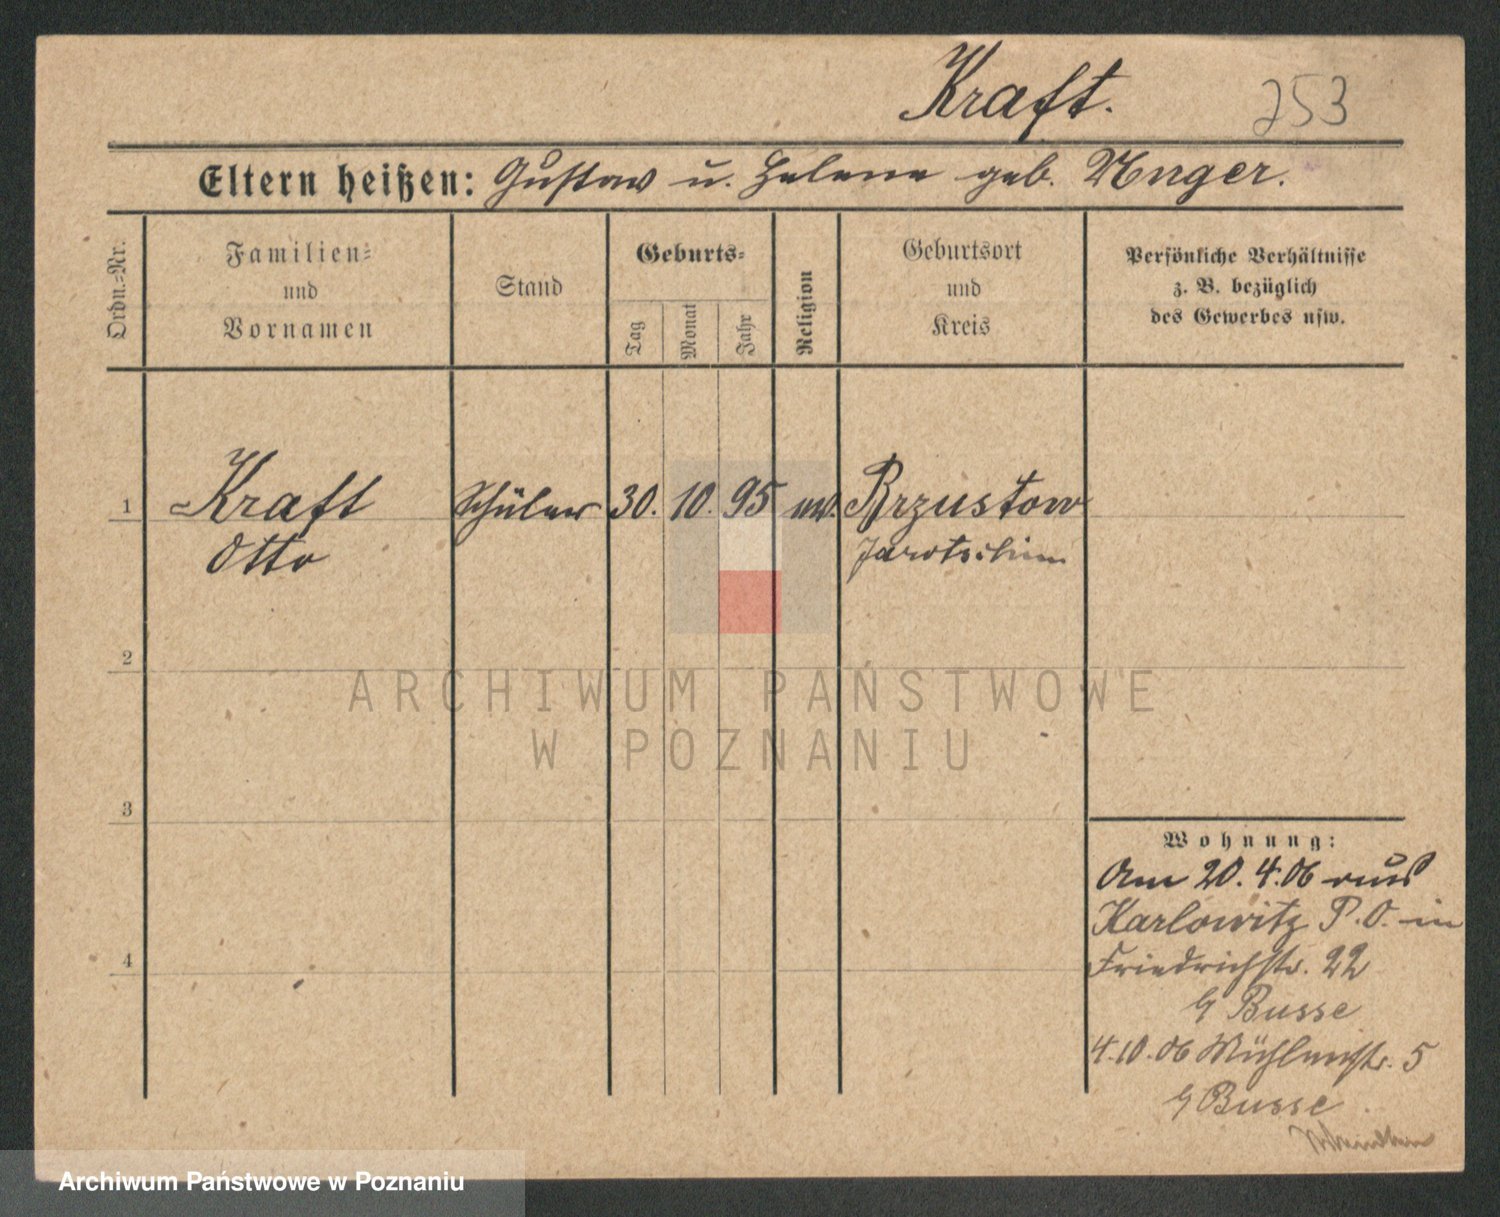 Kraft.
253
Eltern heißen: Gustav u. Helene geb. Unger.
Ordn.=Nr.
Familien=
und
Vornamen
Stand
Geburts=
Tag
Monat
Jahr
Religion
Geburtsort
und
Kreis
Persönliche Verhältnisse
z. B. bezüglich
des Gewerbes usw.
1 Kraft Schüler 30. 10. 95 ev. Brzustow
Otto Jarotschin
2
3
4
Wohnung:
Am 20.4.06 aus
Karlowitz P. O. in
Friedrichstr. 22
b/ Busse
4.10.06 Mühlenstr. 5
b/ Busse
ARCHIWUM PAŃSTWOWE
W POZNANIU
Archiwum Państwowe w Poznaniu